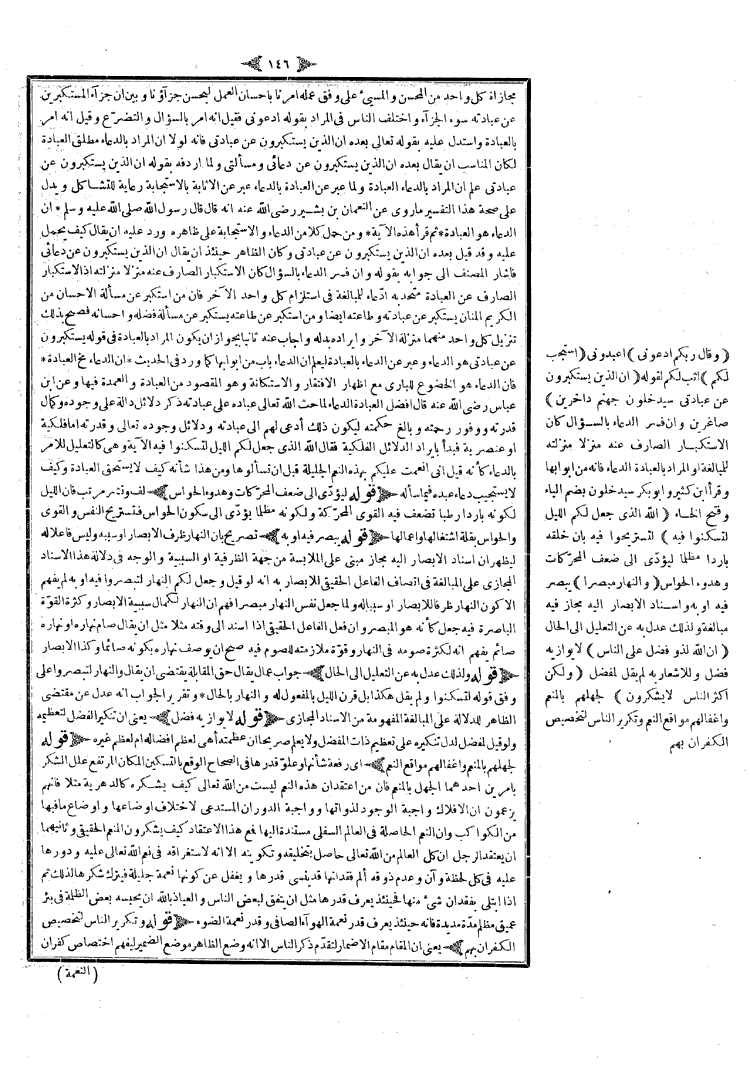 ﴿ ١٤٦ ﴾
مجازاة كل واحد من المحسن والمسيئ على وفق عمله امرنا باحسان العمل ليحسن جزآؤنا وبين ان جزآء المستكبرين
عن عبادته سوء الجزآء واختلف الناس فى المراد بقوله ادعونى فقيل انه امر بالسؤال والتضرع وقيل انه امر
بالعبادة واستدل عليه بقوله تعالى بعده ان الذين يستكبرون عن عبادتى فانه لولا ان المراد بالدعاء مطلق العبادة
لكان المناسب ان يقال بعده ان الذين يستكبرون عن دعائى ومسألتى ولما اردفه بقوله ان الذين يستكبرون عن
عبادتى علم ان المراد بالدعاء العبادة ولما عبر عن العبادة بالدعاء عبر عن الاثابة بالاستجابة رعاية للتشاكل ويدل
على صحة هذا التفسير ماروى عن النعمان بن بشير رضى الله عنه انه قال قال رسول الله صلى الله عليه وسلم * ان
الدعاء هو العبادة * ثم قرأ هذه الآية * ومن حمل كلا من الدعاء والاستجابة على ظاهره ورد عليه ان يقال كيف يحمل
عليه وقد قيل بعده ان الذين يستكبرون عن عبادتى وكان الظاهر حينئذ ان يقال ان الذين يستكبرون عن دعائى
فاشار المصنف الى جوابه بقوله وان فسر الدعاء بالسؤال كان الاستكبار الصارف عنه منزلا منزلته اذ الاستكبار
الصارف عن العبادة متحد به ادعاء للمبالغة فى استلزام كل واحد الآخر فان من استكبر عن مسألة الاحسان من
الكريم المنان يستكبر عن عبادته وطاعته ايضا ومن استكبر عن طاعته يستكبر عن مسألة فضله واحسانه فصح بذلك
تنزيل كل واحد منهما منزلة الآخر وايراده بدله واجاب عنه ثانيا بجواز ان يكون المراد بالعبادة فى قوله يستكبرون
عن عبادتى هو الدعاء وعبر عن الدعاء بالعبادة ليعلم ان الدعاء باب من ابوابها كما ورد فى الحديث * ان الدعاء مخ العبادة *
فان الدعاء هو الخضوع للبارى مع اظهار الافتقار والاستكانة وهو المقصود من العبادة والعمدة فيها وعن ابن
عباس رضى الله عنه قال افضل العبادة الدعاء لما حث الله تعالى عباده على عبادته ذكر دلائل دالة على وجوده وكمال
قدرته ووفور رحمته وبالغ حكمته ليكون ذلك أدعى لهم الى عبادته ودلائل وجوده تعالى وقدرته اما فلكية
او عنصرية فبدأ بايراد الدلائل الفلكية فقال الله الذى جعل لكم الليل لتسكنوا فيه الآية وهى كالتعليل للامر
بالدعاء كأنه قيل انى انعمت عليكم بهذه النعم الجليلة قبل ان تسألوها ومن هذا شأنه كيف لا يستحق العبادة وكيف
لا يستجيب دعاء عبده فيما سأله ﴿ قوله ليؤدى الى ضعف المحركات وهدو الحواس ﴾ لف ونشر مرتب فان الليل
لكونه باردا رطبا تضعف فيه القوى المحركة ولكونه مظلما يؤدى الى سكون الحواس فتستريح النفس والقوى
والحواس بقلة اشتغالها واعمالها ﴿ قوله يبصر فيه او به ﴾ تصريح بان النهار ظرف الابصار او سببه وليس فاعلا له
ليظهر ان اسناد الابصار اليه مجاز مبنى على الملابسة من جهة الظرفية او السببية والوجه فى دلالة هذا الاسناد
المجازى على المبالغة فى اتصاف الفاعل الحقيقى للابصار به انه لو قيل وجعل لكم النهار لتبصروا فيه او به لم يفهم
الا كون النهار ظرفا للابصار او سببا له ولما جعل نفس النهار مبصرا فهم ان النهار لكمال سببية الابصار وكثرة القوة
الباصرة فيه جعل كأنه هو المبصر وان فعل الفاعل الحقيقى اذا اسند الى وقته مثلا مثل ان يقال صام نهاره او نهاره
صائم يفهم انه لكثرة صومه فى النهار وقوة ملازمته للصوم فيه صح ان يوصف نهاره بكونه صائما وكذا الابصار
﴿ قوله ولذلك عدل به عن التعليل الى الحال ﴾ جواب عما يقال حق المقابلة يقتضى ان يقال والنهار لتبصروا على
وفق قوله لتسكنوا ولم يقل هكذا بل قرن الليل بالمفعول له والنهار بالحال * وتقرير الجواب انه عدل عن مقتضى
الظاهر للدلالة على المبالغة المفهومة من الاسناد المجازى ﴿ قوله لا يوازيه فضل ﴾ يعنى ان تنكير الفضل لتعظيمه
ولو قيل لمفضل لدل تنكيره على تعظيم ذات المفضل ولا يعلم صريحا ان عظمته أهى لعظم افضاله ام لعظم غيره ﴿ قوله
لجهلهم بالمنعم واغفالهم مواقع النعم ﴾ اى رفعة شأنها وعلو قدرها فى الصحاح الوقع بالتسكين المكان المرتفع علل الشكر
بامرين احدهما الجهل بالمنعم فان من اعتقد ان هذه النعم ليست من الله تعالى كيف يشكره كالدهرية مثلا فانهم
يزعمون ان الافلاك واجبة الوجود لذواتها وواجبة الدوران المستدعى لاختلاف اوضاعها واوضاع مافيها
من الكواكب وان النعم الحاصلة فى العالم السفلى مستندة اليها فمع هذا الاعتقاد كيف يشكرون المنعم الحقيقى وثانيهما
ان يعتقد الرجل ان كل العالم من الله تعالى حاصل بتخليقه وتكوينه الا انه لاستغراقه فى نعم الله تعالى عليه ودورها
عليه فى كل لحظة وآن وعدم ذوقه ألم فقدانها قد ينسى قدرها ويغفل عن كونها نعمة جليلة فيترك شكرها لذلك ثم
اذا ابتلى بفقدان شئ منها فحينئذ يعرف قدرها مثل ان يتفق لبعض الناس والعياذ بالله ان يحبسه بعض الظلمة فى بئر
عميق مظلم مدة مديدة فانه حينئذ يعرف قدر نعمة الهوآء الصافى وقدر نعمة الضوء ﴿ قوله وتكرير الناس لتخصيص
الكفران بهم ﴾ يعنى ان المقام مقام الاضمار لتقدم ذكر الناس الا انه وضع الظاهر موضع الضمير ليفهم اختصاص كفران
( النعمة )
( وقال ربكم ادعونى ) اعبدونى ( استجب
لكم ) اثب لكم لقوله ( ان الذين يستكبرون
عن عبادتى سيدخلون جهنم داخرين )
صاغرين وان فسر الدعاء بالسؤال كان
الاستكبار الصارف عنه منزلا منزلته
للمبالغة او المراد بالعبادة الدعاء فانه من ابوابها
وقرأ ابن كثير وابو بكر سيدخلون بضم الياء
وفتح الخاء ( الله الذى جعل لكم الليل
لتسكنوا فيه ) لتستريحوا فيه بان خلقه
باردا مظلما ليؤدى الى ضعف المحركات
وهدو الحواس ( والنهار مبصرا ) يبصر
فيه او به واسناد الابصار اليه مجاز فيه
مبالغة ولذلك عدل به عن التعليل الى الحال
( ان الله لذو فضل على الناس ) لا يوازيه
فضل وللاشعار به لم يقل لمفضل ( ولكن
اكثر الناس لايشكرون ) لجهلهم بالمنعم
واغفالهم مواقع النعم وتكرير الناس لتخصيص
الكفران بهم